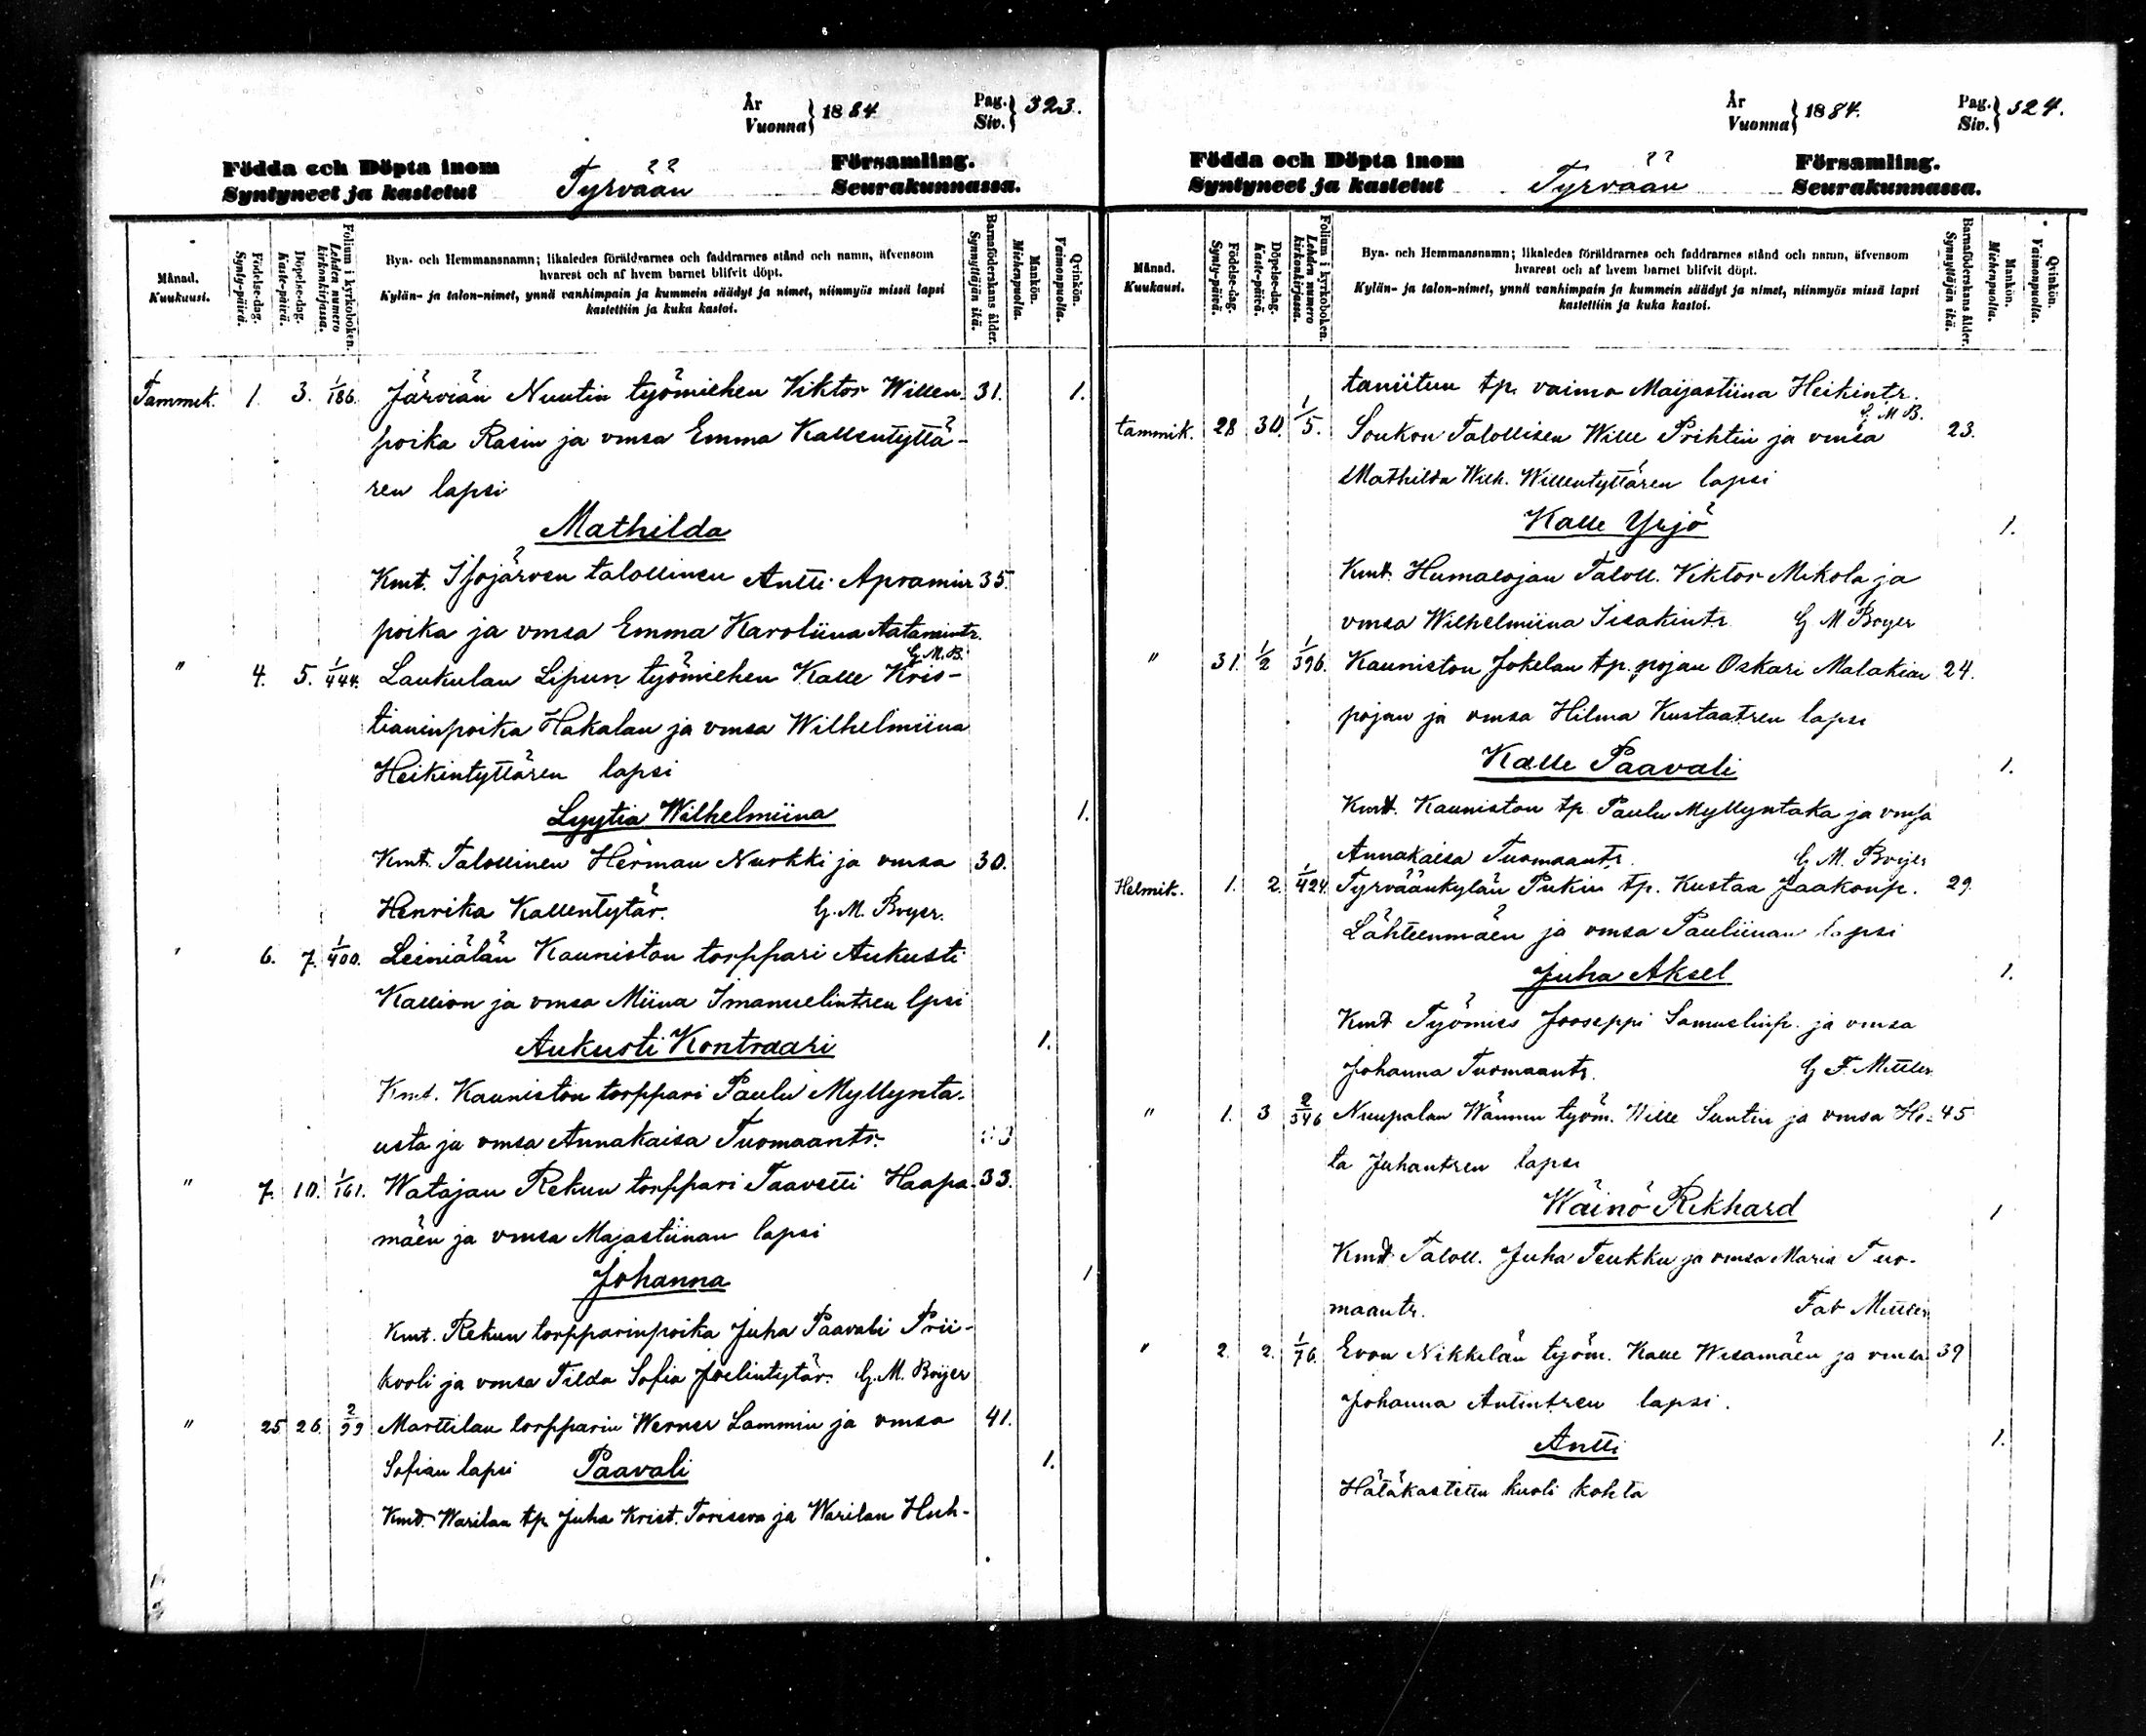 År
Vuonna } 1884. Pag.
Siv. } 323.
Födda och Döpta inom Församling.
Syntyneet ja kastetut Tyrvään Seurakunnassa.
Månad.
Kuukausi.
Födelse-dag.
Synty-päivä.
Döpelse-dag.
Kaste-päivä.
Folium i kyrkoboken.
Lehden numero kirkonkirjassa.
Bya- och Hemmansnamn; likaledes föräldrarnes och faddrarnes stånd och namn, äfvensom
hvarest och af hvem barnet blifvit döpt.
Kylän- ja talon-nimet, ynnä vanhimpain ja kummein säädyt ja nimet, niinmyös missä lapsi
kastettiin ja kuka kastoi.
Barnaföderskans ålder.
Synnyttäjän ikä.
Mankön.
Miehenpuolia.
Qvinkön.
Vaimonpuolia.
Tammik. 1. 3. 1/186. Järviän Nuutin työmiehen Viktor Willen 31. 1.
poika Rasin ja vmsa Emma Kallentyttä-
ren lapsi
Mathilda
Kmt. Isojärven talollinen Antti Apramin 35.
poika ja vmsa Emma Karoliina Aatamintr.
G. M. B.
" 4. 5. 1/444. Laukulan Lipun työmiehen Kalle Kris-
tianinpoika Hakalan ja vmsa Wilhelmiina
Heikintyttären lapsi
Lyytia Wilhelmiina 1.
Kmt. Talollinen Herman Nurkki ja vmsa 30.
Henrika Kallentytär. G. M. Boyer.
" 6. 7. 1/400. Leiniälän Kauniston torppari Aukusti
Kallion ja vmsa Miina Imanuelintren lpsi
Aukusti Kontraari 1.
Kmt. Kauniston torppari Paulu Myllynta-
usta ja vmsa Annakaisa Tuomaantr.
" 7. 10. 1/161. Watajan Rekun torppari Taavetti Haapa- 33.
mäen ja vmsa Majastiinan lapsi
Johanna 1
Kmt. Rekun torpparinpoika Juha Paavali Prii-
kooli ja vmsa Tilda Sofia Joelintytär. G. M. Boijer
" 25 26. 2/99 Marttilan torpparin Werner Lammin ja vmsa 41.
Sofian lapsi Paavali 1.
Kmt. Warilan tp Juha Krist. Torissva ja Warilan Huh-
År
Vuonna } 1884. Pag.
Siv. } 324.
Födda och Döpta inom Församling.
Syntyneet ja kastetut Tyrvään Seurakunnassa.
Månad.
Kuukausi.
Födelse-dag.
Synty-päivä.
Döpelse-dag.
Kaste-päivä.
Folium i kyrkoboken.
Lehden numero kirkonkirjassa.
Bya- och Hemmansnamn; likaledes föräldrarnes och faddrarnes stånd och namn, äfvensom
hvarest och af hvem barnet blifvit döpt.
Kylän- ja talon-nimet, ynnä vanhimpain ja kummein säädyt ja nimet, niinmyös missä lapsi
kastettiin ja kuka kastoi.
Barnaföderskans ålder.
Synnyttäjän ikä.
Mankön.
Miehenpuolia.
Qvinkön.
Vaimonpuolia.
taniitun tp. vaimo Maijastiina Heikintr.
G. M B.
tammik. 28 30. 1/5. Soukon Talollisen Wille Prihtin ja vmsa 23.
Mathilda Wilh. Willentyttären lapsi
Kalle Yrjö 1.
Kmt. Humalojan Taloll. Viktor Mikola ja
vmsa Wilhelmiina Iisakintr. G M Boyer
" 31. 1/2 1/396. Kauniston Jokelan tp. pojan Oskari Malakian 24.
pojan ja vmsa Hilma Kustaatren lapsi
Kalle Paavali 1.
Kmt. Kauniston tp Paulu Myllyntaka ja vmsa
Annakaisa Tuomaantr. G. M. Boijer
Helmik. 1. 2. 1/424. Tyrväänkylän Pukin tp. Kustaa Jaakonp. 29.
Lähteenmäen ja vmsa Pauliinan lapsi
Juha Aksel 1.
Kmt Työmies Jooseppi Samuelinp. ja vmsa
Johanna Tuomaantr. G F. Mittler
" 1. 3 2/346 Nuupalan Wännu työm. Wille Suntin ja vmsa He- 45
ta Juhantren lapsi
Wäinö Rikhard 1
Kmt Taloll. Juha Teukku ja vmsa Maria Tuo-
maantr. Fab Mittler
" 2. 2. 1/76. Evon Nikkilän työm. Kalle Wesamäen ja vmsa 39
Johanna Antintren lapsi.
Antti 1.
Hätäkastettu kuoli kohta